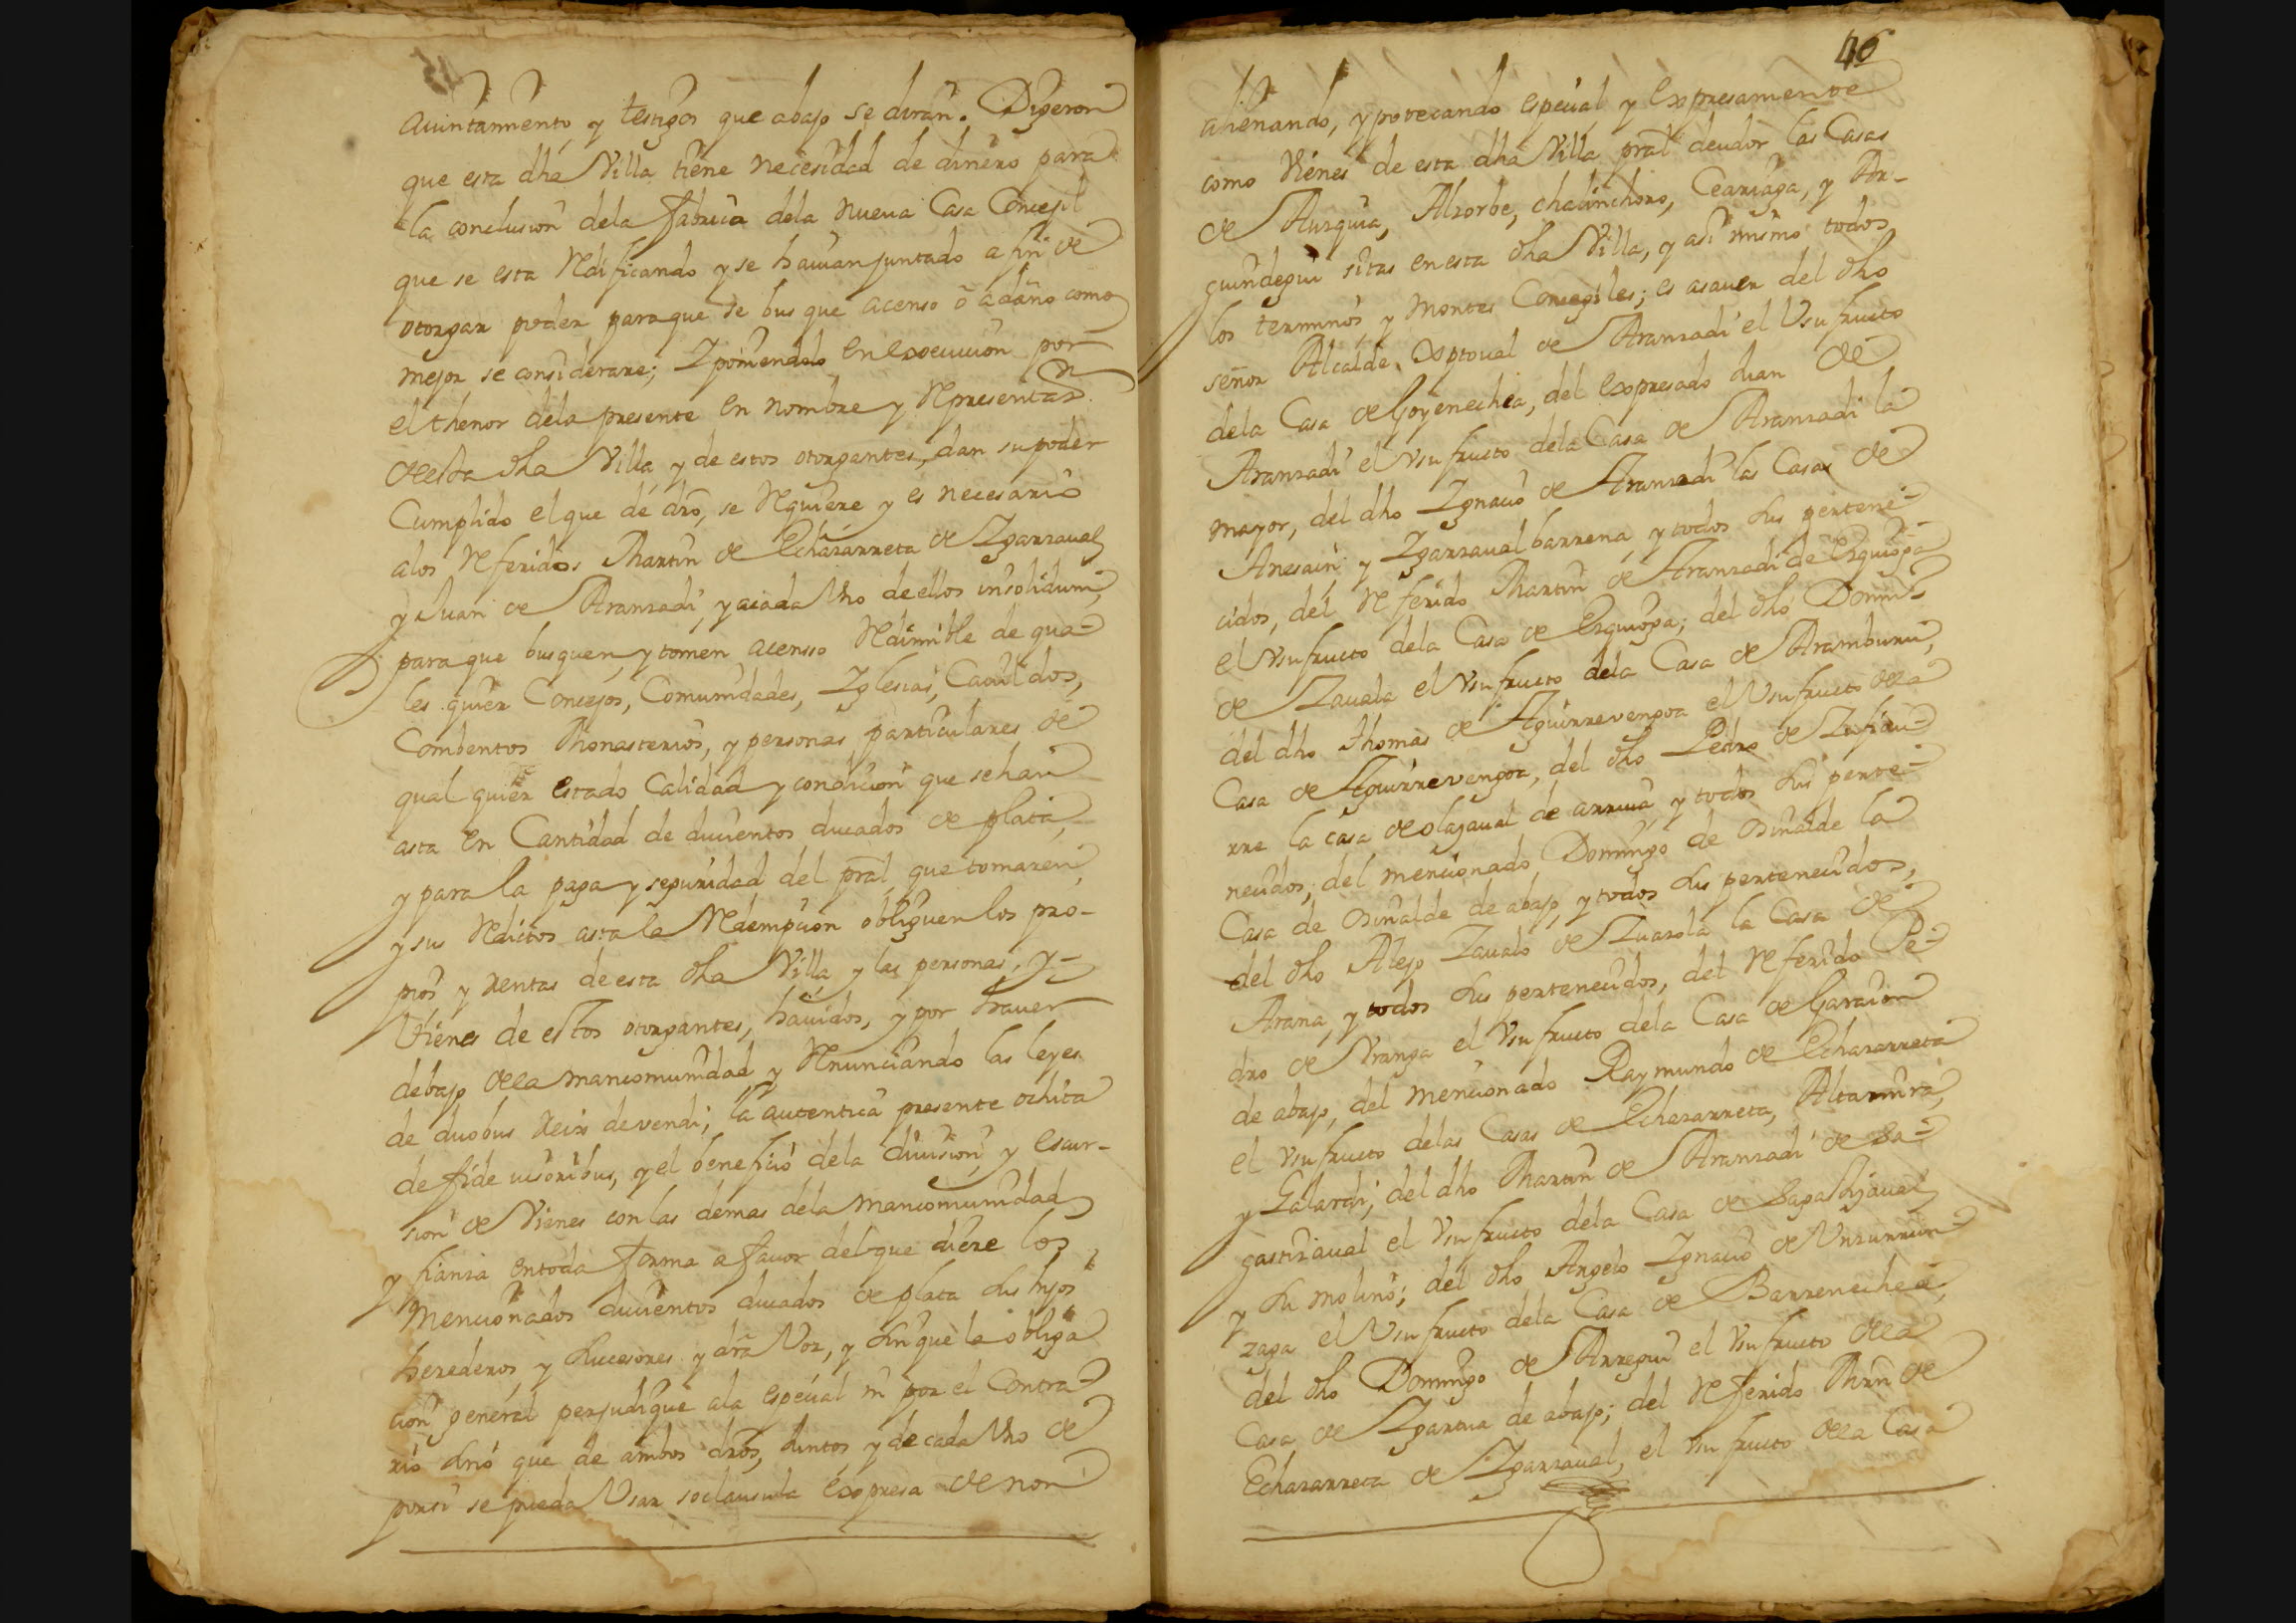 auintamiento, y testigos que abajo se diran. Digeron
que esta dha Villa tiene necesidad de dinero para
la conclusion dela fabrica dela nueua Casa Concejil
que se esta Redificando y se hauian juntado a fin de
otorgar poder paraque se busque acenso ô adaño como
mejor se considerare; Y poniendolo en execuçion por
el thenor dela presente en nombre y Representaz.on
de esta dha Villa, y de estos otorgantes, dan su poder
Cumplido el que de dro, se Requiere y es necesario
alos Referidos Martin de Echazarreta de Ygarzaual
y Juan de Aranzadi, y acada Vno de ellos insolidum,
para que busquen, y tomen acenso Redimible de qua-
les quier Concejos, Comunidades, Yglesias, Cauildos,
Combentos Monasterios, y personas particulares de
qual quier estado Calidad y condicion que sehan
asta en Cantidad de ducientos ducados de plata,
y para la paga y seguridad del pral, que tomaren,
y sus Reditos asta la Redempcion obliguen los pro-
pios y rentas de esta dha Villa, y las personas, y-
Vienes de estos otorgantes, hauidos, y por hauer
debajo dela mancomunidad y Renunciando las leyes
de duobus Reix devendi; la autentica presente ochita
de fide iusoribus, y el beneficio dela diuision, y escur-
sion de Vienes con las demas dela mancomunidad
y fianza entoda forma a fauor del que diere los
mencionados ducientos ducados de plata sus hijos
herederos y sucesores y dra Voz, y sinque la obliga
cion general perjudique ala especial ni por el Contra-
rio sino que de ambos dros, juntos, y de cada Vno de
porsi se pueda Vsar soclausula expresa de non
46
alienando, ypotecando especial y expresamente
como Vienes de esta dha Villa pral deudor las Casas
de Aurquia, Alzorbe, chalinchoro, Ceariaga, y Ar-
guindegui sitas en esta dha Villa, y asi mismo todos
los terminos y montes Concegiles; es asauer del dho
señor Alcalde Xptoual de Aranzadi el Vsu fructo
dela Casa de Goyenechea, del expresado Juan de
Aranzadi el Vsu fructo dela Casa de Aranzadi la
mayor, del dho Ygnacio de Aranzadi las Casas de
Anesain y Ygarzaual barrena, y todos sus pertene-
cidos, del Referido Martin de Aranzadi de Ezquioga
el Vsu fructo dela Casa de Ezquioga; del dho Domin-
de Zauala el Vsu fructo dela Casa de Aramburu,
del dho Thomas de Aguirrevengoa el Vsu fructo dela
Casa de Aguirrevengoa, del dho Pedro de Zufiau-
rre la casa de olazaual de arriua, y todos sus perte-
necidos; del mencionado Domingo de oñalde la
Casa de oñalde de abajo, y todos sus pertenecidos,
del dho Alejo Zaualo de Zuazola la Casa de
Arana, y todos sus pertenecidos, del Referido Pe-
dro de Vranga el Vsu fructo dela Casa de Garaion
de abajo, del mencionado Raymundo de Echazarreta
el Vsu fructo delas Casas de Echazarreta, Altamira,
y Galardi; del dho Martin de Aranzadi de Sa-
gastizaual el Vsu fructo dela Casa de Sagastizaual
y su molino; del dho Angelo Ygnacio de Vnzurrun-
zaga el Vsu fructo dela Casa de Barrenechea;
del dho Domingo de Arregui el Vsu fructo dela
Casa de Ygartua de abajo; del Referido Mrn de
Echazarreta de Ygarzaual, el Vsu fructo dela Casa